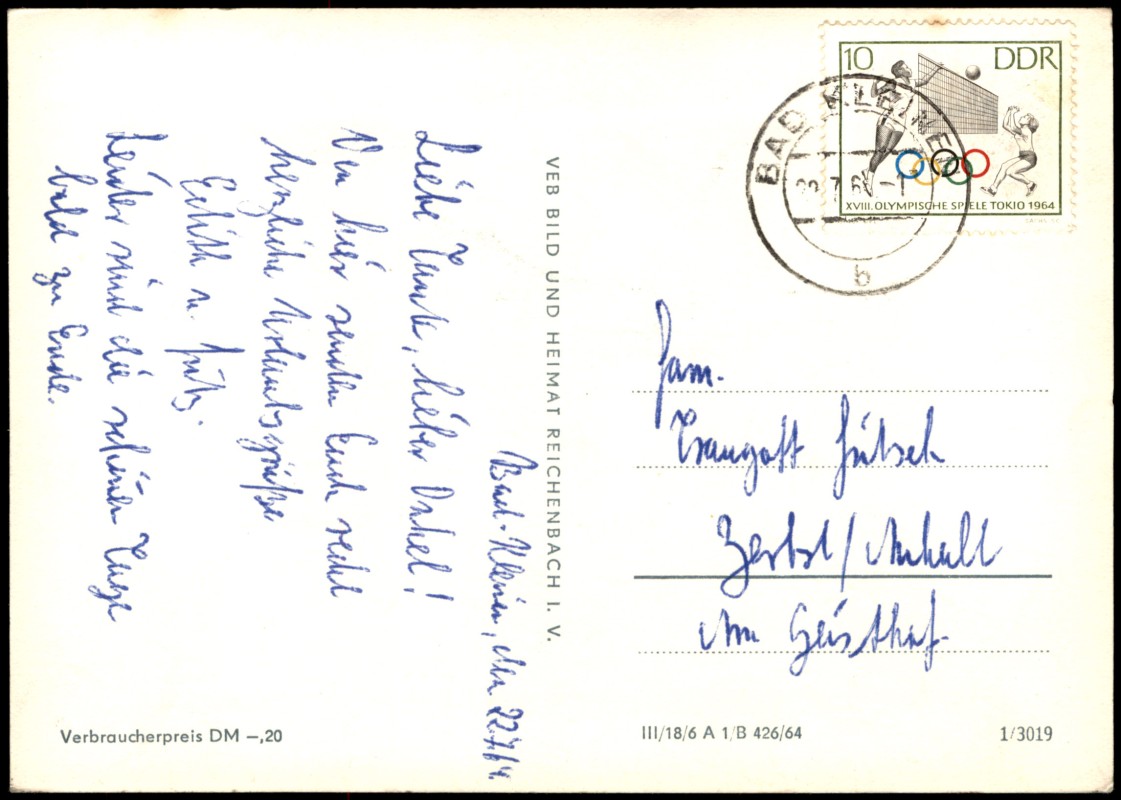 Bad-Kleinen, den 22.7.64
Liebe Tante, lieber Onkel!
Von hier senden Euch recht
herzliche Urlaubsgrüße
Edith u. Fritz.
Leider sind die schönen Tage
bald zu Ende.
VEB BILD UND HEIMAT REICHENBACH I. V.
Verbraucherpreis DM –,20
10 DDR
XVIII. OLYMPISCHE SPIELE TOKIO 1964
BAD KLEINEN
b
Fam.
Traugott
Zerbst/Anhalt
Am Geisthof
III/18/6 A 1/B 426/64
1/3019